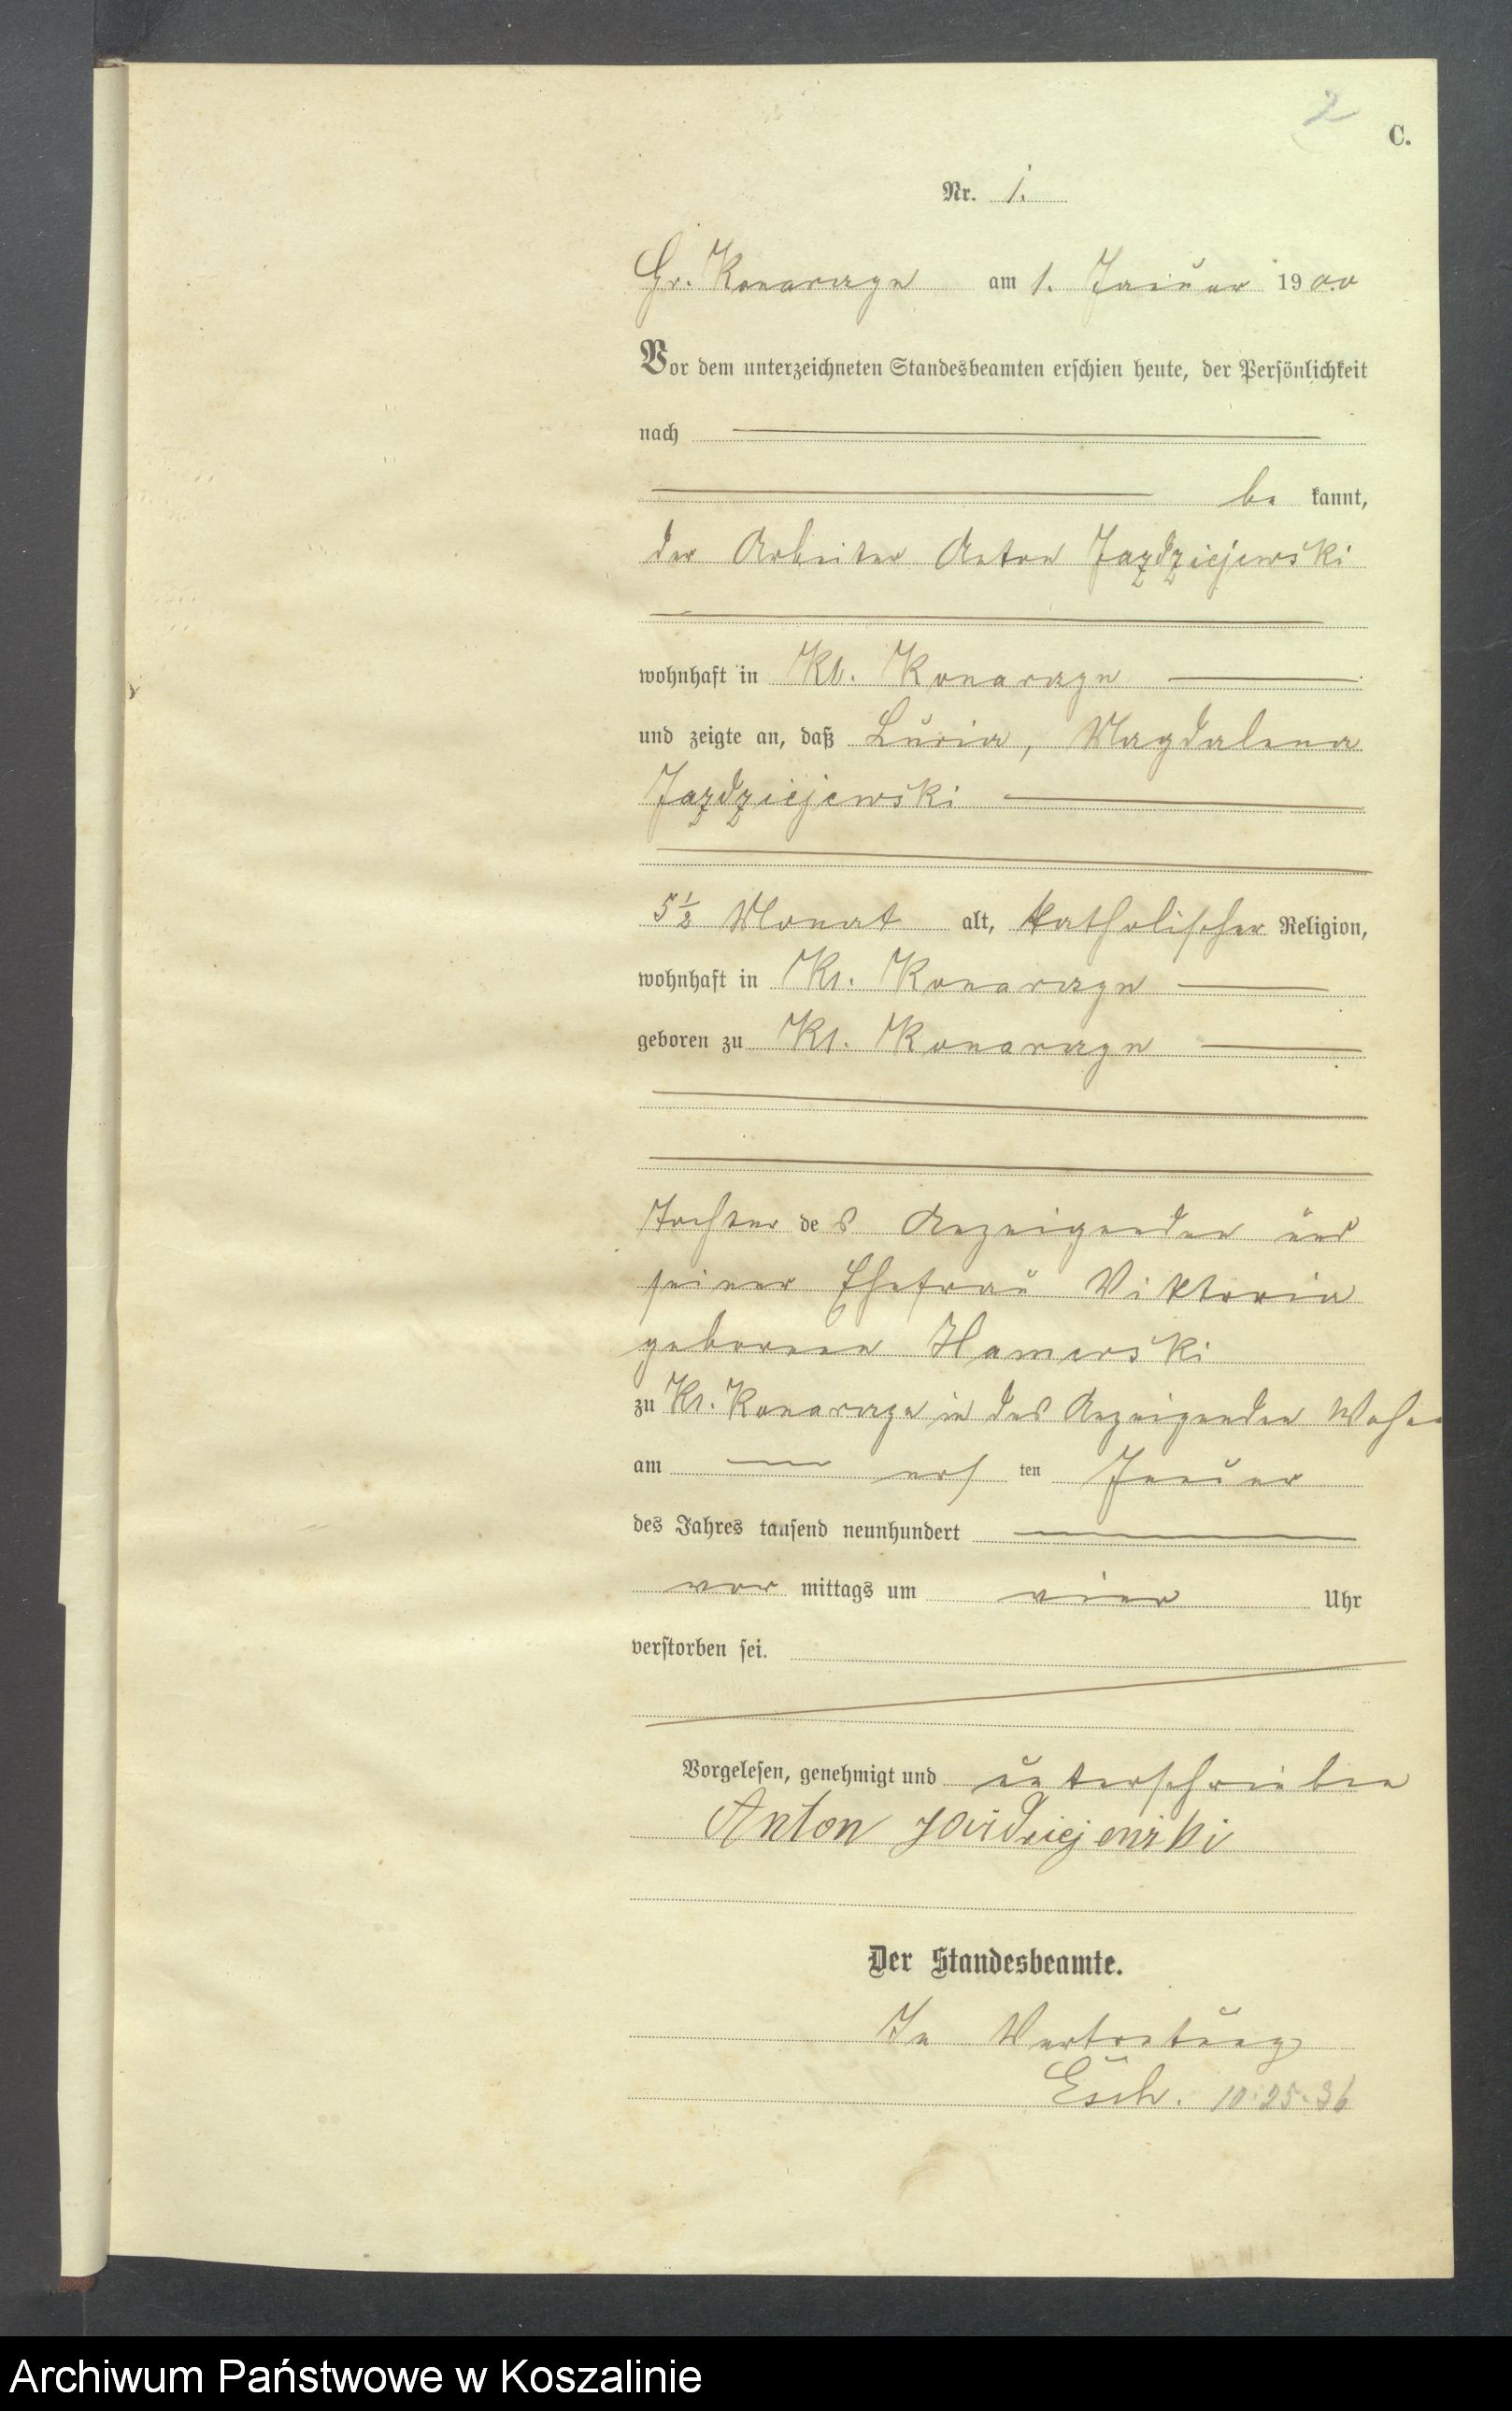 2
C.
Nr. 1.
Gr. Konarzyn am 1. Januar 1900
Vor dem unterzeichneten Standesbeamten erschien heute, der Persönlichkeit
nach
be kannt,
der Arbeiter Anton Jazdziejewski
wohnhaft in Kl. Konarzyn
und zeigte an, daß Luzia, Magdalena
Jazdziejewski
5½ Monat alt, katholischer Religion,
wohnhaft in Kl. Konarzyn
geboren zu Kl. Konarzyn
Tochter des Anzeigenden und
seiner Ehefrau Viktoria
geborenen Hamerski
zu Kl. Konarzyn in des Anzeigenden
am ers ten Januar
des Jahres tausend neunhundert
vor mittags um vier Uhr
verstorben sei.
Vorgelesen, genehmigt und unterschrieben
Anton
Der Standesbeamte.
In Vertretung
Esch. 10.25.36
Archiwum Państwowe w Koszalinie